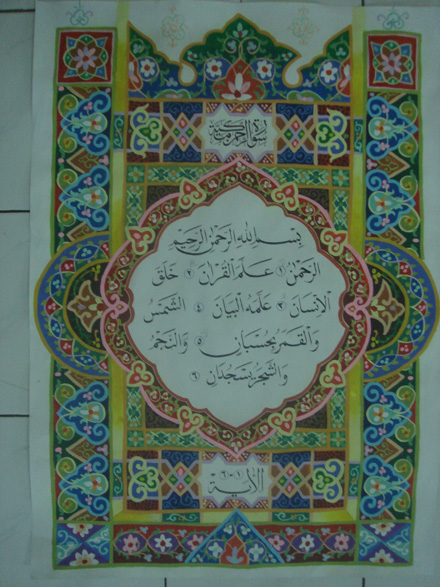 سورة الرحمن مكية
بسم الله الرحمن الرحيم
الرحمن ١ علم القران ٢ خلق
الانسان ٣ علمه البيان ٤ الشمس
والقمر بحسبان ٥ والنجم
والشجر يسجدان ٦
١-٦
الاية